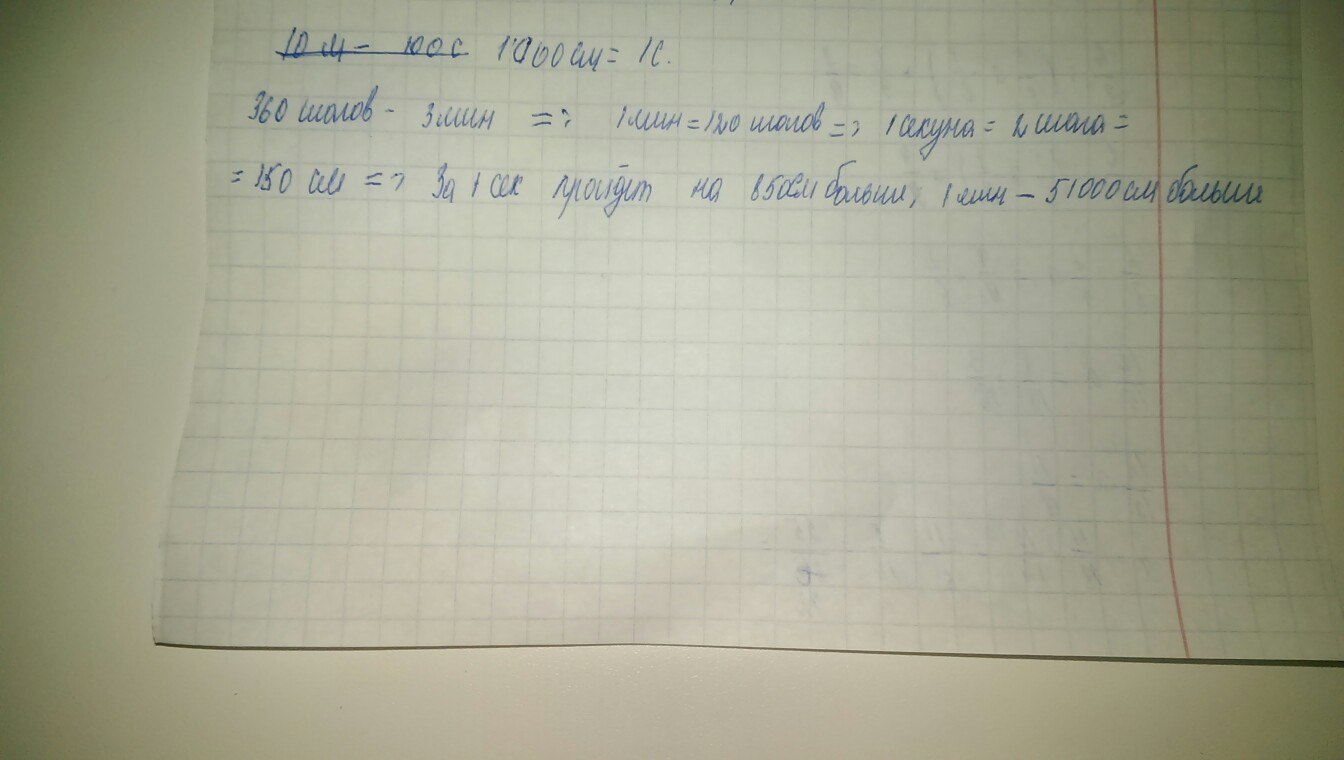 10 м – 100 с 1000 см = 1с.
360 шагов - 3 мин => 1 мин = 120 шагов => 1 секуна = 2 шага =
= 150 см => За 1 сек пройдёт на 850см больши, 1 мин – 51000 см больши